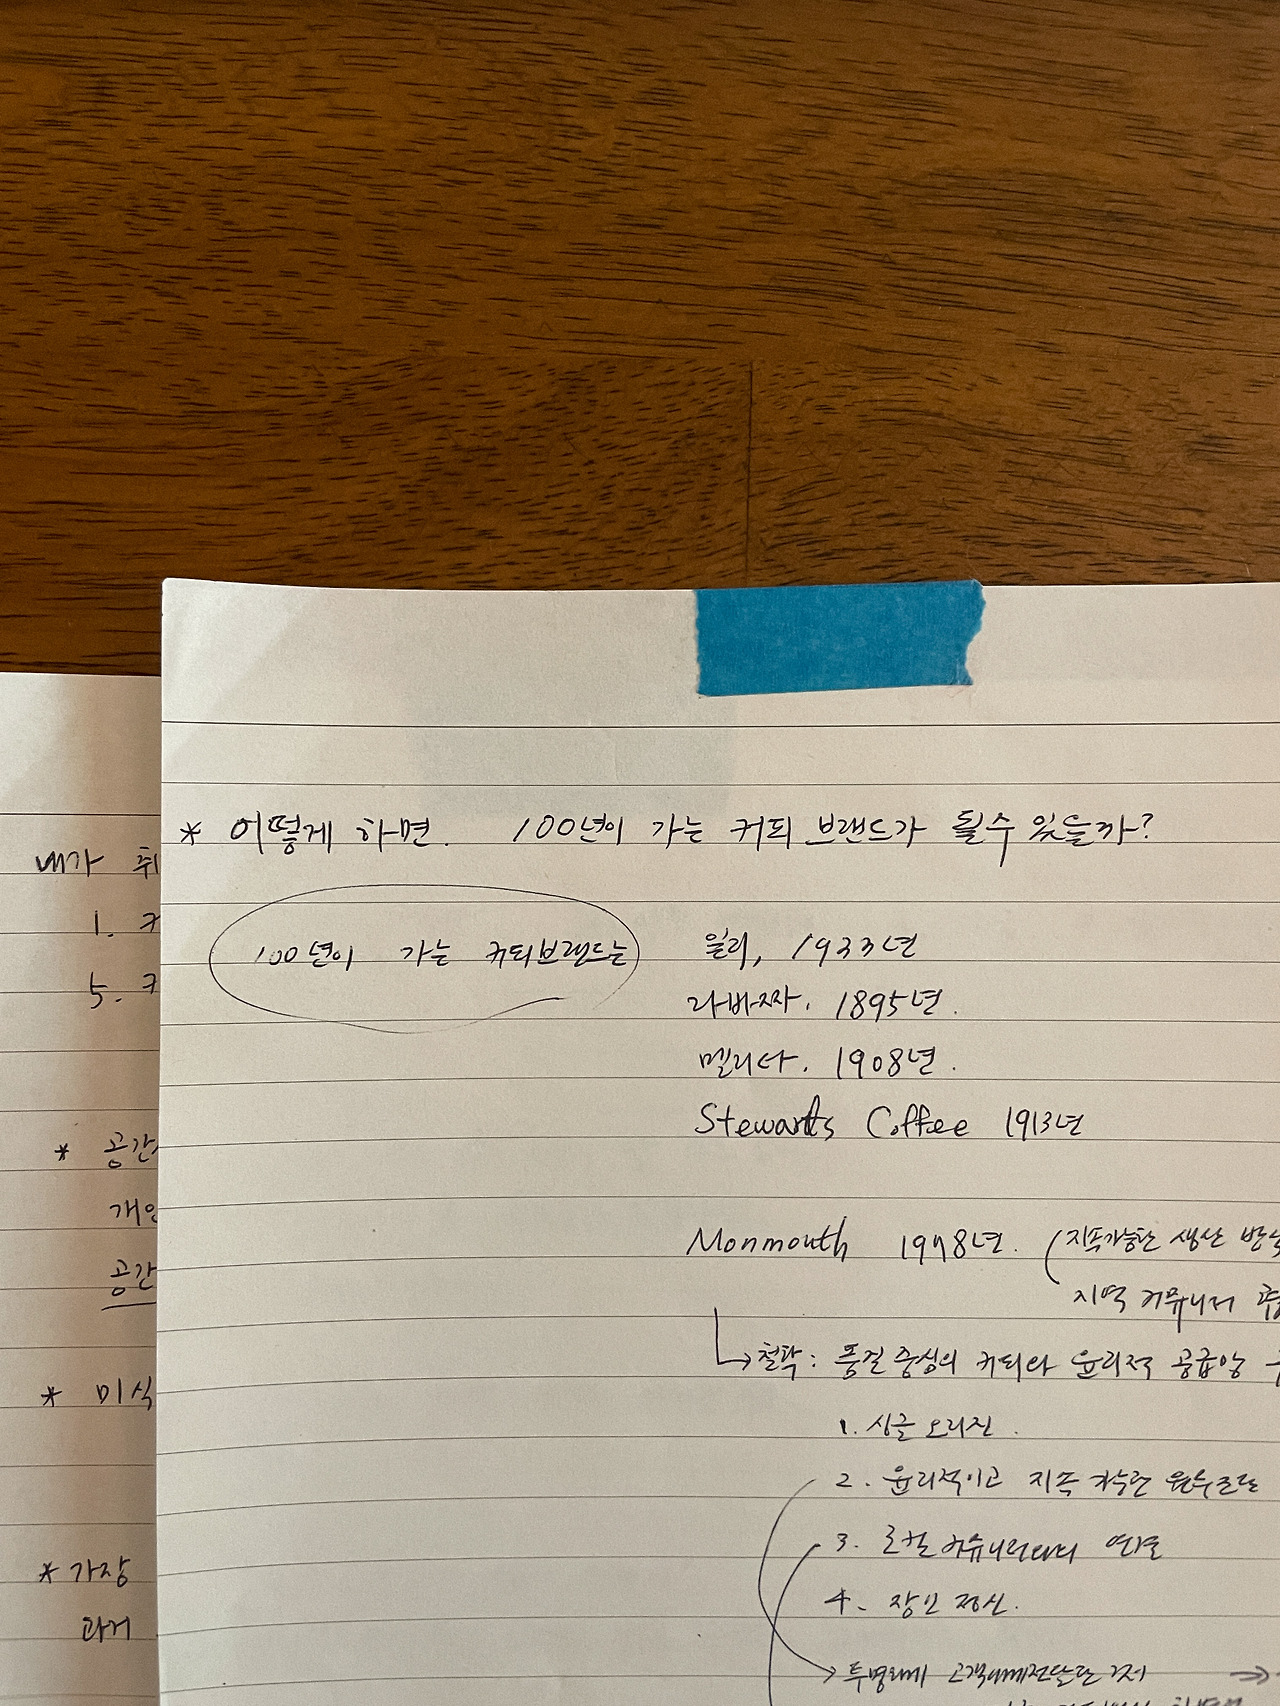 * 어떻게 하면. 100년이 가는 커피 브랜드가 될수 있을까?
100년이 가는 커피브랜드는
일리, 1933년
라바짜. 1895년.
멜리타. 1908년.
Stewarts Coffee 1913년
Monmouth 1978년. (지속가능한 생산
지역 커뮤니티
→ 철학: 품질 중심의 커피와 윤리적 공급망
1. 싱글 오리진.
2. 윤리적이고 지속 가능한 원두조달
3. 로컬 커뮤니티와의 연결
4. 장인 정신.
→ 투명하게 고객에게전달 →
내가
1. 커
5. 커
* 공간
개인
공간
* 미식
* 가장
과거